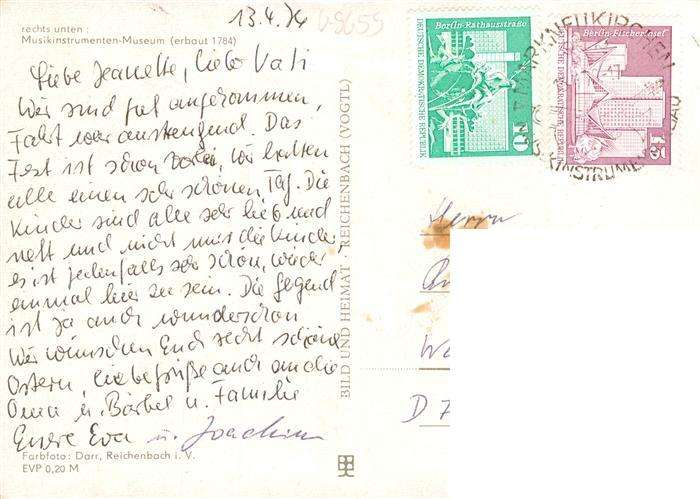 13.4.74
rechts unten :
Musikinstrumenten-Museum (erbaut 1784)
Liebe Jeanette, lieber Vati
Wir sind gut angekommen,
Fahrt war anstrengend. Das
Fest ist schon vorbei, wir hatten
alle einen sehr schönen Tag. Die
Kinder sind alle sehr lieb und
nett und nicht nur die Kinder
es ist jedenfalls sehr schön, wieder
einmal hier zu sein. Die Gegend
ist ja auch wunderschön
Wir wünschen Euch recht schöne
Ostern, liebe Grüße auch an die
Oma u. Bärbel u. Familie
Eure Eva u. Joachim
Farbfoto: Darr, Reichenbach i. V.
EVP 0,20 M
BILD UND HEIMAT · REICHENBACH (VOGTL)
Berlin-Rathausstraße
DEUTSCHE DEMOKRATISCHE REPUBLIK
10
Berlin-Fischerinsel
DEUTSCHE DEMOKRATISCHE REPUBLIK
15
MARKNEUKIRCHEN
Herrn
D 7